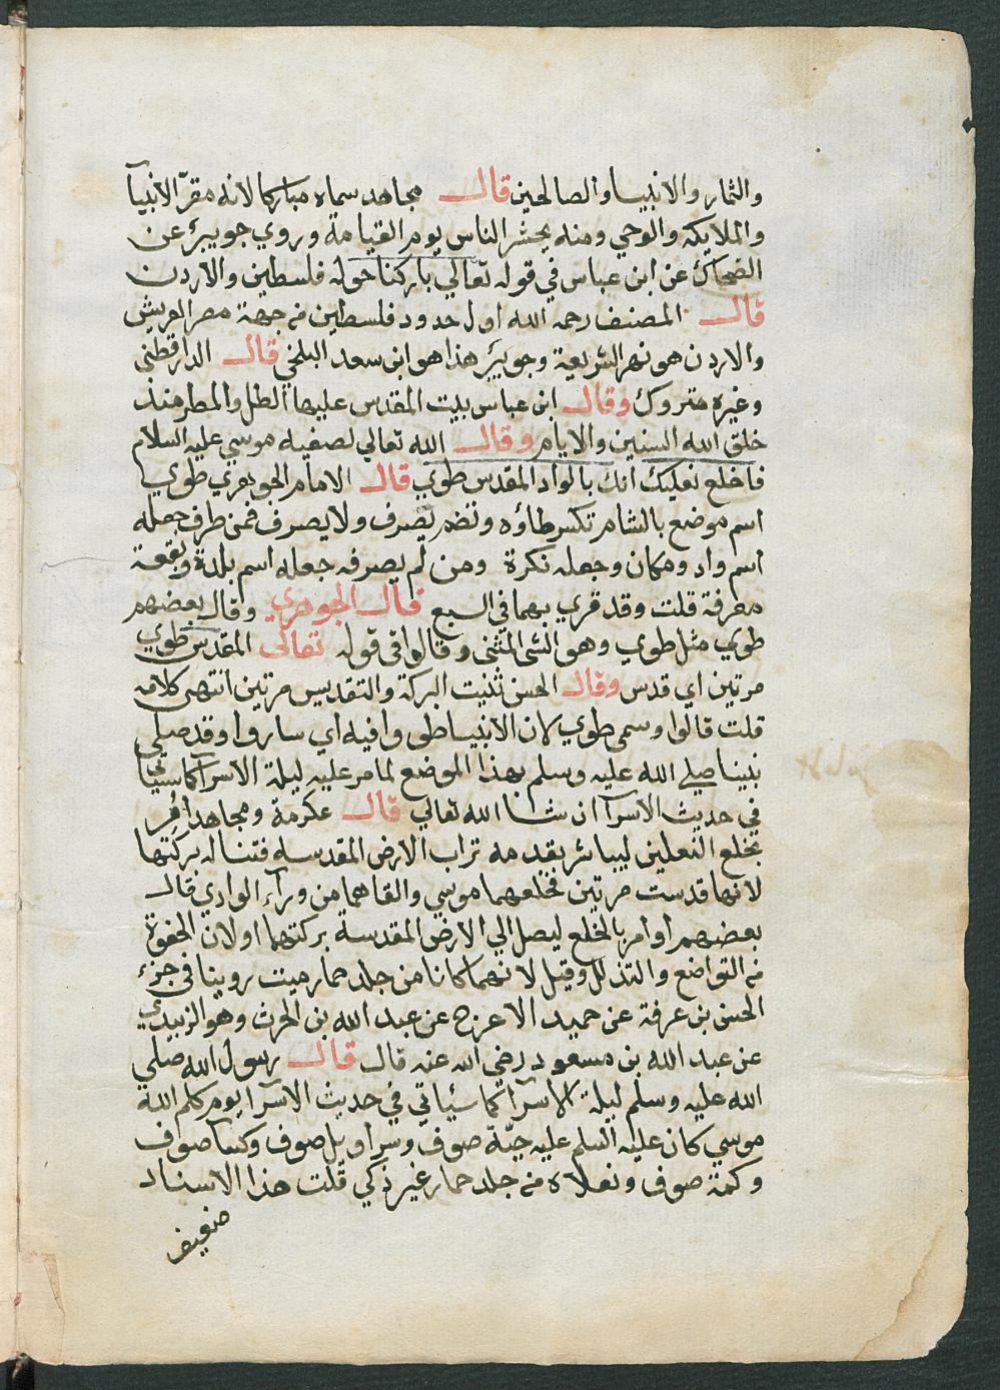 والثمار والانبيا والصالحين قال مجاهد سماه مباركا لانه مقرّ الانبيآ
والملايكه والوحي ومنه يحشر الناس يوم القيامة وروي جويبر عن
الضحاك عن ابن عباس في قوله تعالي باركنا حوله فلسطين والاردن
قال المصنف رحمه الله اول حدود فلسطين من جهة مصر العريش
والاردن هو نهر الشريعة وجويبر هذا هو ابن سعد البلخي قال الدارقطنى
وغيره متروك وقال ابن عباس بيت المقدس عليها الطل والمطر منذ
خلق الله السنين والايام وقال الله تعالي لصفيه موسي عليه السلام
فاخلع نعليك انك بالواد المقدس طوي قال الامام الجوهري طوي
اسم موضع بالشام تكسر طاؤه وتضم يصرف ولا يصرف فمن صرف جعله
اسم واد ومكان وجعله نكرة ومن لم يصرفه جعله اسم بلدة وبقعة
معرفة قلت وقد قري بهما في السبع قال الجوهري وقال بعضهم
طوي مثل طوي وهو الشى المثنى وقالوا في قوله تعالى المقدس طوي
مرتين اي قدس وقال الحسن ثنيت البركة والتقديس مرتين انتهى كلامه
قلت قالوا وسمى طوي لان الانبيا طووا فيه اي ساروا وقد صلي
نبينا صلي الله عليه وسلم بهذا الموضع لما مر عليه ليلة الاسرآ كما سياتي
في حديث الاسرآ ان شا الله تعالي قال عكرمة ومجاهد امُر
بخلع النعلين ليباشر بقدمه تراب الارض المقدسه فتناله بركتها
لانها قدست مرتين فخلعهما موسي والقاهما من ورآء الوادي قال
بعضهم او امر بالخلع ليصل الي الارض المقدسة بركتهما او لان الحفوة
من التواضع والتذلل وقيل لانهما كانا من جلد حمار ميت روينا في جزء
الحسن بن عرفة عن حميد الاعرج عن عبد الله بن الحرث وهو الزبيدي
عن عبد الله بن مسعود رضي الله عنه قال قال رسول الله صلي
الله عليه وسلم ليلة الاسرآ كما سياتي في حديث الاسرآ يوم كلم الله
موسي كان عليه السلم عليه جبّة صوف وسراويل صوف وكسآ صوف
وكمة صوف ونعلاه من جلد حمار غير ذكي قلت هذا الاسناد
ضعيف